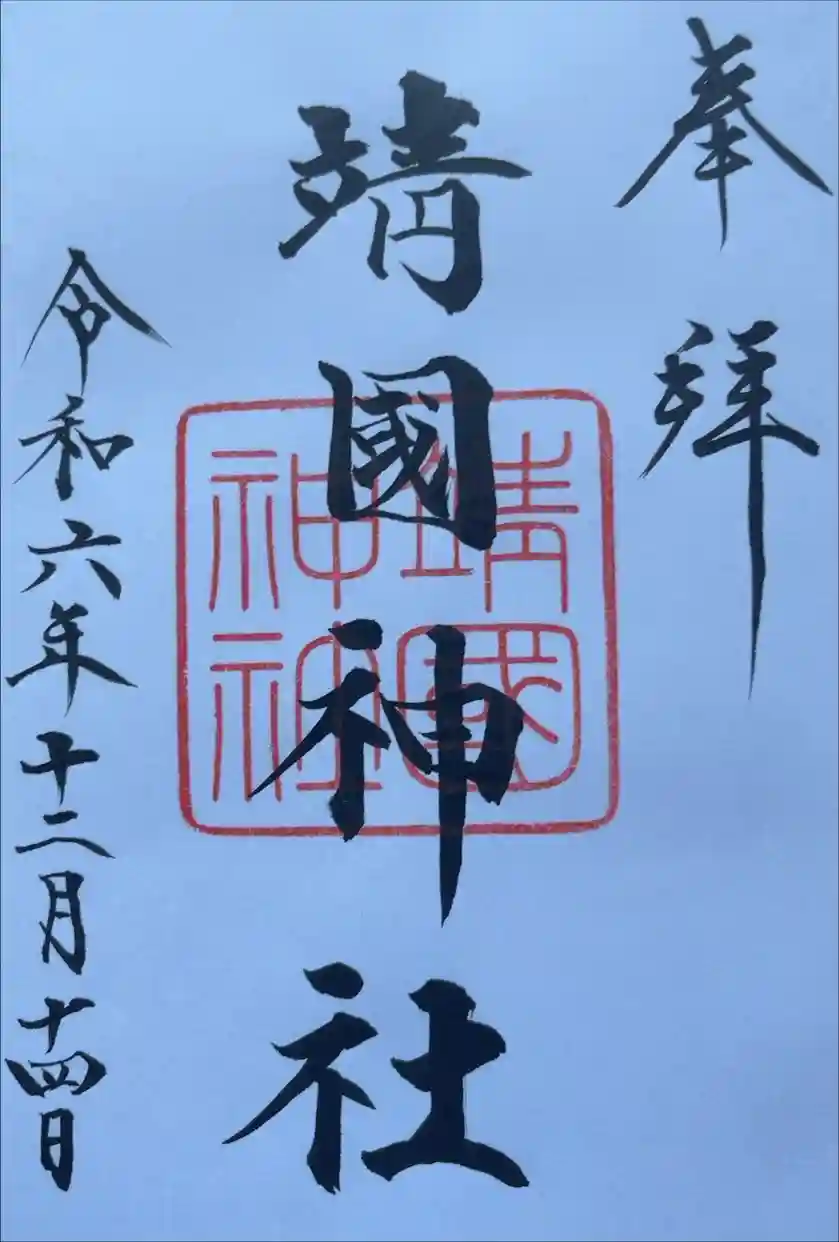 奉拝
靖國神社
靖國
神社
令和六年十二月十四日